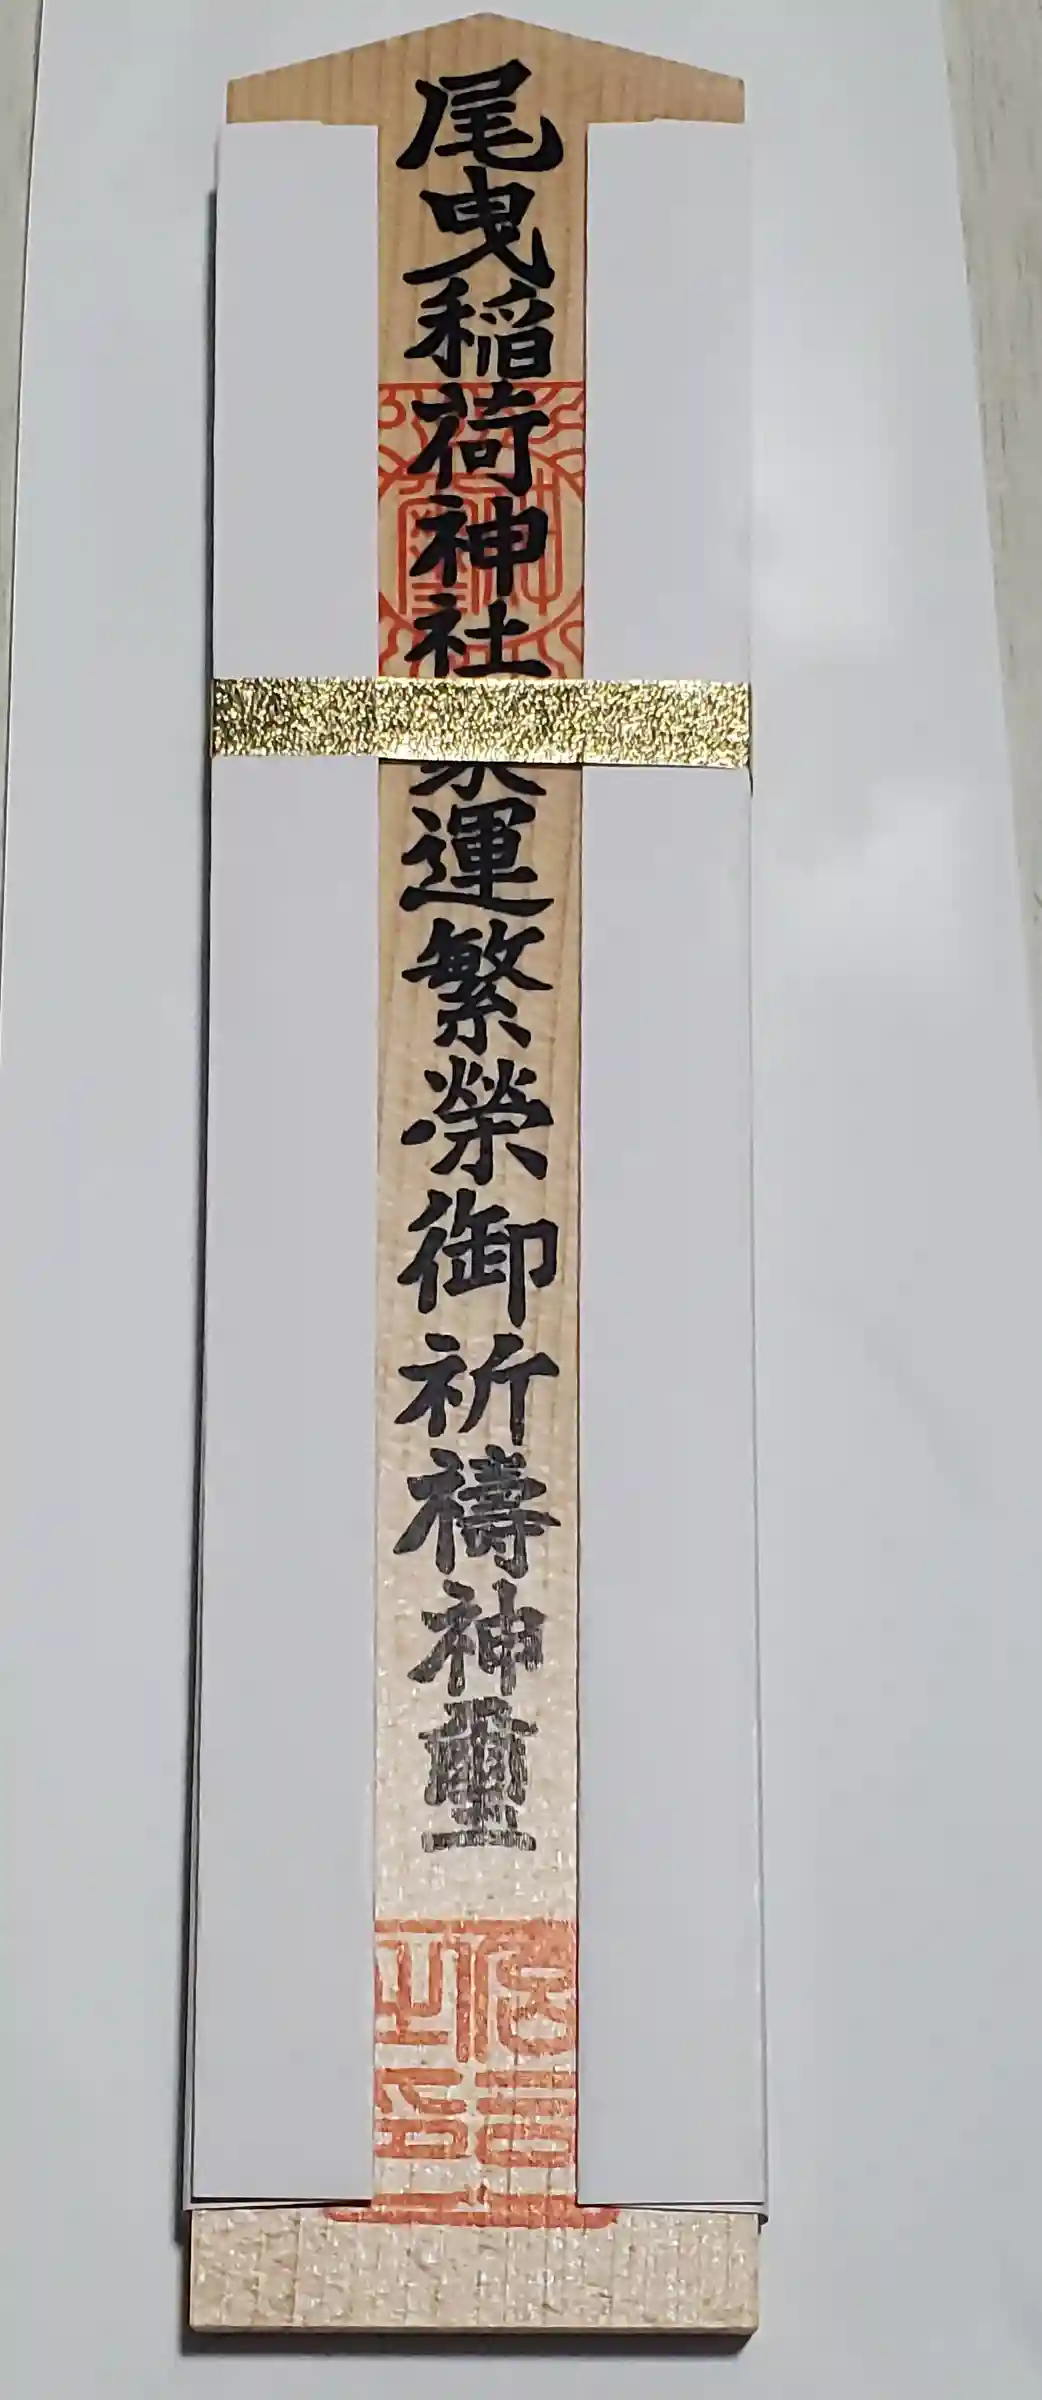 尾曳稲荷神社家運繁榮御祈禱神璽